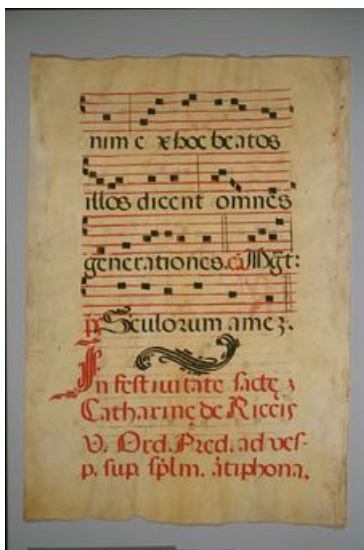 nim e x hoc beatos
illos dicent omnes
generationes. ca Mgt:
Sculorum ame3.
In festiuitate sacte 3
Catharine de Riccis
V. Ord. Pred. ad ves-
p. sup. splm. atiphona.